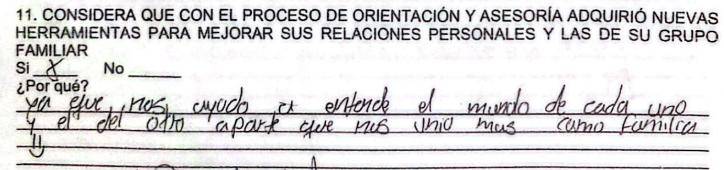 11. CONSIDERA QUE CON EL PROCESO DE ORIENTACIÓN Y ASESORÍA ADQUIRIÓ NUEVAS
HERRAMIENTAS PARA MEJORAR SUS RELACIONES PERSONALES Y LAS DE SU GRUPO
FAMILIAR
Si X No
¿Por qué?
ya que nos ayudo a entende el mundo de cada uno
y el del otro aparte que nos unio mas como familia